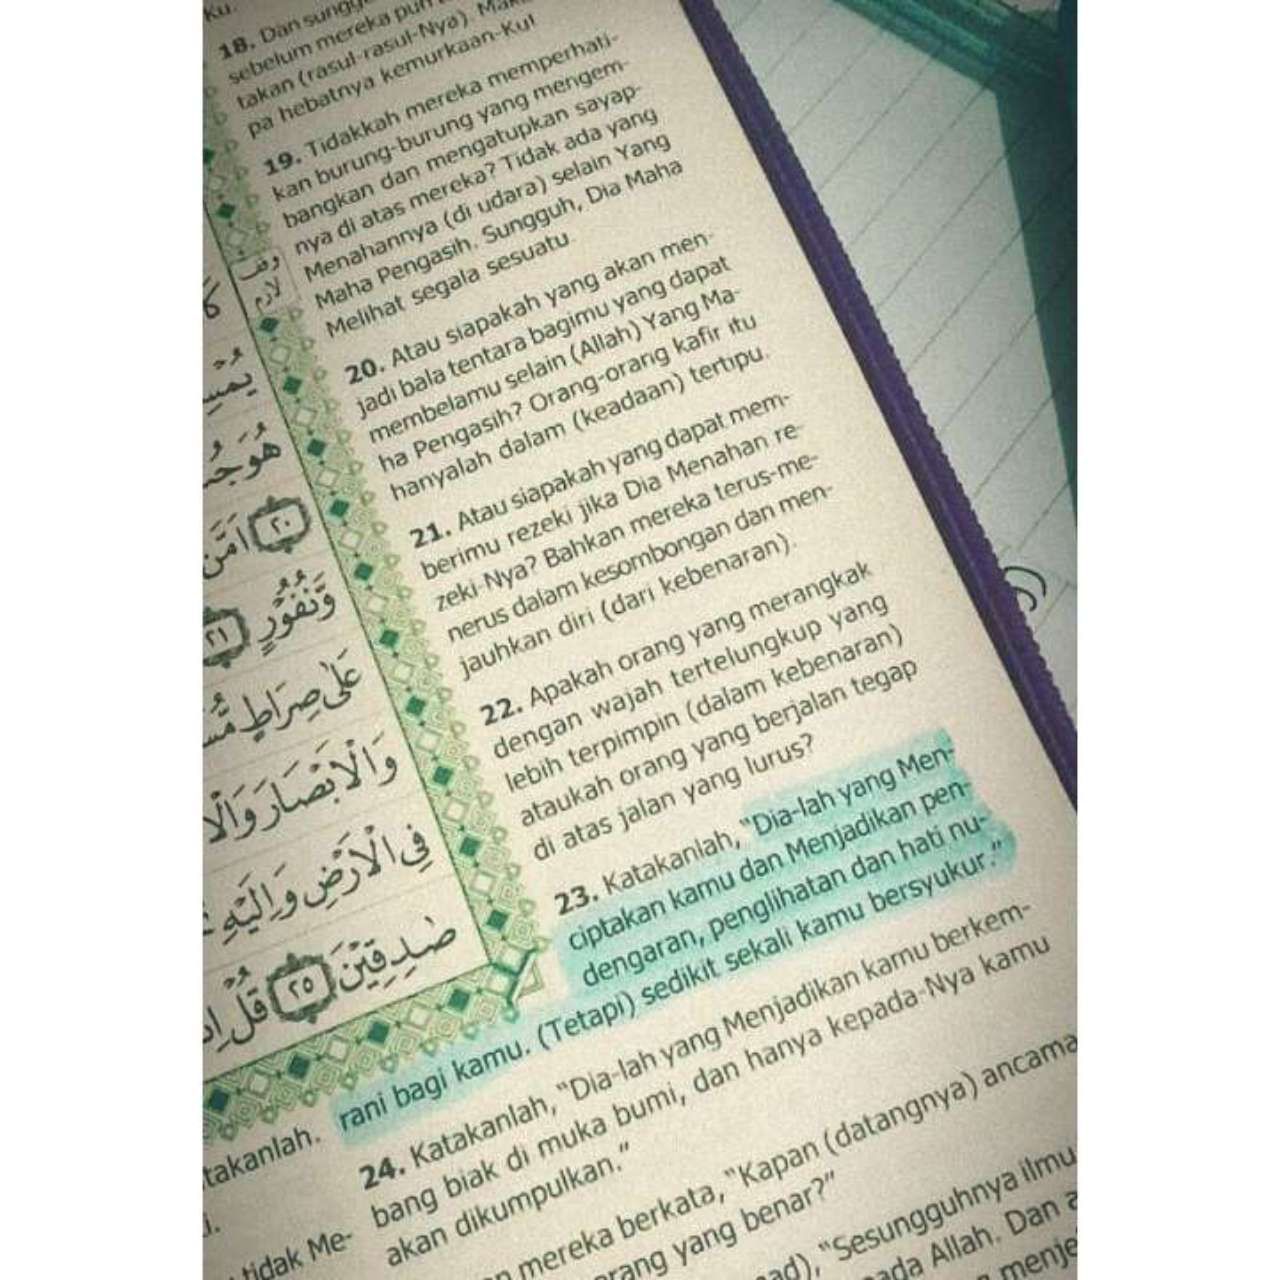 Ku.
18. Dan sungg
sebelum mereka pun
takan (rasul-rasul-Nya). Mak
pa hebatnya kemurkaan-Ku!
19. Tidakkah mereka memperhati-
kan burung-burung yang mengem-
bangkan dan mengatupkan sayap-
nya di atas mereka? Tidak ada yang
Menahannya (di udara) selain Yang
Maha Pengasih. Sungguh, Dia Maha
Melihat segala sesuatu.
20. Atau siapakah yang akan men-
jadi bala tentara bagimu yang dapat
membelamu selain (Allah) Yang Ma-
ha Pengasih? Orang-orang kafir itu
hanyalah dalam (keadaan) tertipu.
21. Atau siapakah yang dapat mem-
berimu rezeki jika Dia Menahan re-
zeki-Nya? Bahkan mereka terus-me-
nerus dalam kesombongan dan men-
jauhkan diri (dari kebenaran).
22. Apakah orang yang merangkak
dengan wajah tertelungkup yang
lebih terpimpin (dalam kebenaran)
ataukah orang yang berjalan tegap
di atas jalan yang lurus?
23. Katakanlah, "Dia-lah yang Men-
ciptakan kamu dan Menjadikan pen-
dengaran, penglihatan dan hati nu-
rani bagi kamu. (Tetapi) sedikit sekali kamu bersyukur."
24. Katakanlah, "Dia-lah yang Menjadikan kamu berkem-
bang biak di muka bumi, dan hanya kepada-Nya kamu
akan dikumpulkan."
mereka berkata, "Kapan (datangnya) ancama
orang yang benar?"
ad), "Sesungguhnya ilmu
ada Allah. Dan a
menje
takanlah.
tidak Me-
وقف
لازم
هُوَ جُ
٢٠ اَمَّنْ
وَّنُفُوْرٍ ٢١
عَلٰى صِرَاطٍ مُّسْ
وَالْاَبْصَارَ وَالْاَ
فِى الْاَرْضِ وَاِلَيْهِ
صٰدِقِيْنَ ٢٥ قُلْ اِنَّ